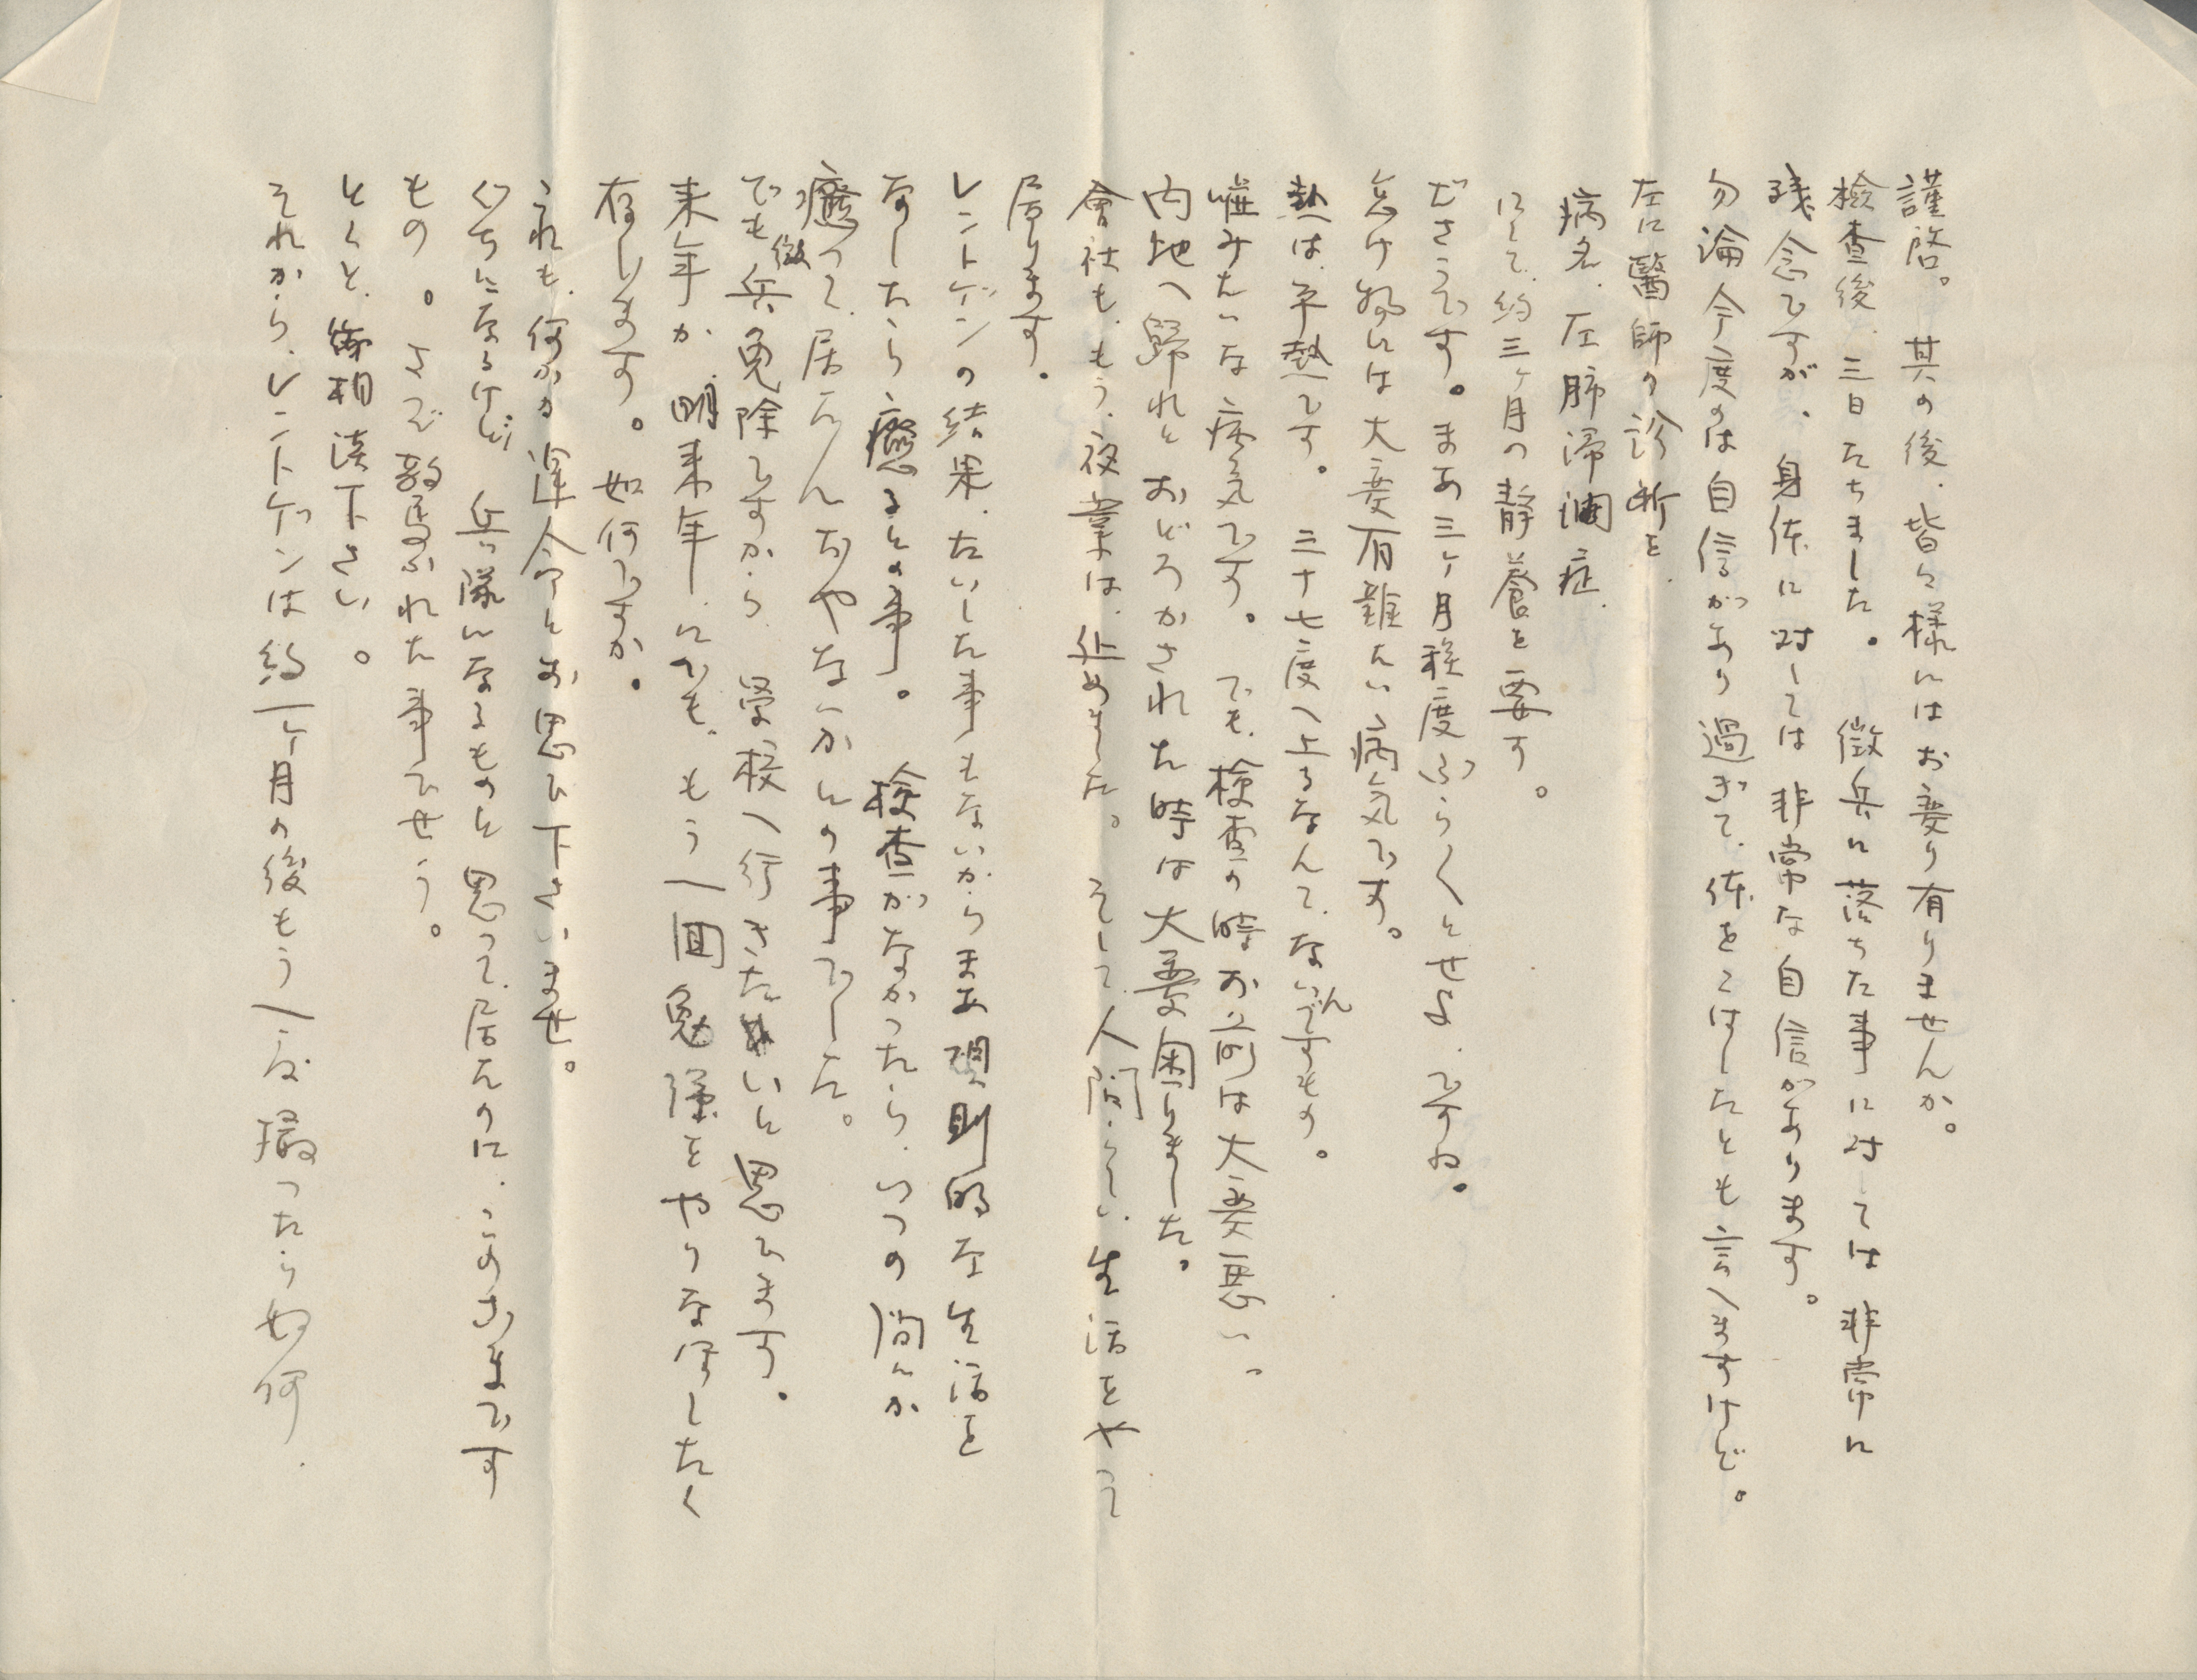 謹啓。其の後、皆々様にはお変り有りませんか。
檢查後、三日たちました。徴兵に落ちた事に対しては非常に
残念ですが、身体に対しては非常な自信があります。
勿論今度のは自信があり過ぎて、体をこはしたとも言へますけど。
左に醫師の診断を
病名、左肺滞潤症、
にて、約三ヶ月の静養を要す。
ださうです。まあ三ヶ月程度ぶら〱とせよ、ですね。
怠け物には大変有難たい病気です。
熱は平熱です。三十七度へ上るなんて、ないんですもの。
嘘みたいな病気です。でも、検査の時お前は大変悪い、
内地へ歸れとおどろかされた時は大変困りました。
會社も、もう、夜業は、止めました。そして人間らしい生活をやって
居ります。
レントゲンの結果、たいした事もないからまあ規則的な生活を
なしたら、癒るとの事。検査がなかったら、いつの間にか
癒って、居たんぢゃないかとの事でした。
でも徴兵免除ですから、學校へ行きたいと思ひます。
来年か、明来年にでも、もう一回勉強をやりなほしたく
存じます。如何ですか。
これも、何かの運命とお思ひ下さいませ。
くちになるけど、兵隊になるものと思って居たのに、このざまです
もの。さぞ驚かれた事でせう。
とくと、御相談下さい。
それから、レントゲンは約一ヶ月の後もう一度撮ったら如何、